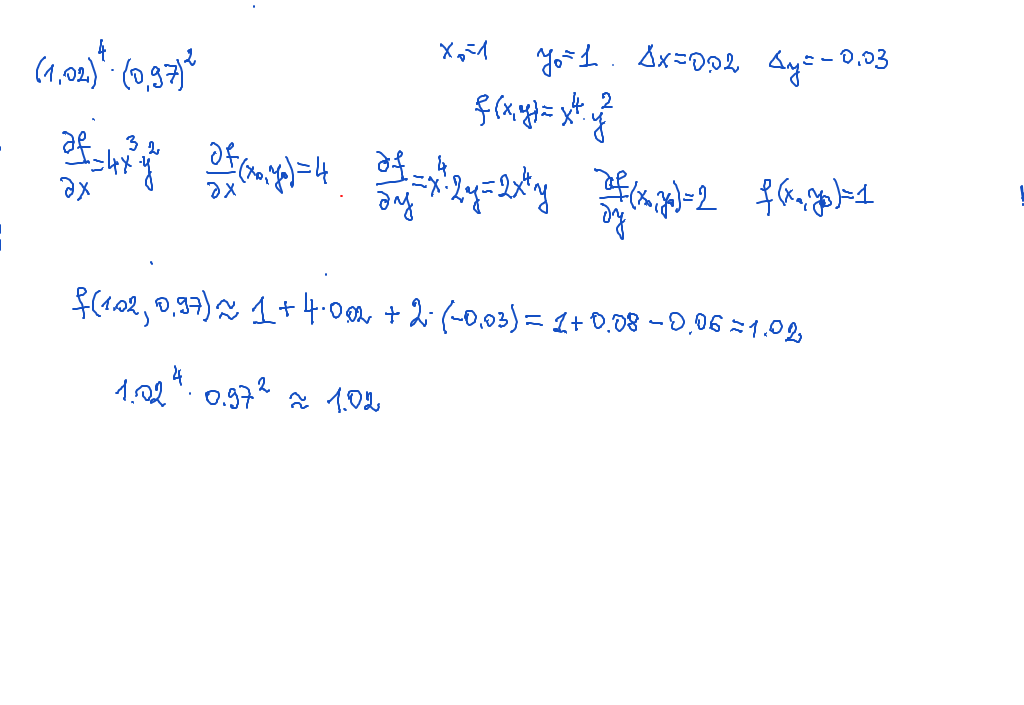 (1,02)⁴ · (0,97)² x₀=1 y₀=1 Δx=0.02 Δy=-0.03
f(x,y)=x⁴·y²
∂f/∂x=4x³·y² ∂f/∂x(x₀,y₀)=4 ∂f/∂y=x⁴·2y=2x⁴y ∂f/∂y(x₀,y₀)=2 f(x₀,y₀)=1
f(1.02, 0.97) ≈ 1 + 4·0.02 + 2·(-0.03) = 1+0.08-0.06=1.02
1.02⁴ · 0.97² ≈ 1.02